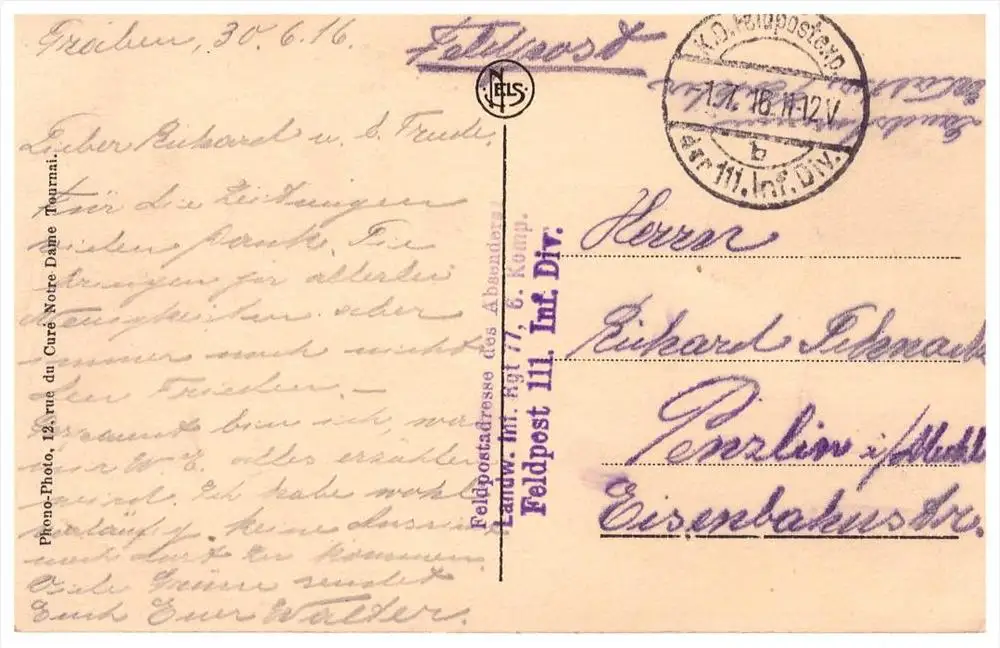 Graben, 30.6.16.
Feldpost
Lieber Richard u. l. Trude.
Für die Zeitungen
vielen Dank. Sie
bringen ja allerlei
Neuigkeiten aber
immer noch nicht
den Frieden. –
Gespannt bin ich, was
mir W. E. alles erzählen
wird. Ich habe wohl
vorläufig keine Aussicht
nach dort zu kommen.
Viele Grüsse sendet
Euch Euer Walter.
Phono-Photo, 12, rue du Curé Notre Dame Tournai.
NELS
Feldpostadresse des Absenders:
Landw. Inf. Rgt 77, 6. Komp.
Feldpost 111. Inf. Div.
K.D. Feldpostexp.
1.7.16.11-12V
b
der 111. Inf. Div.
Herrn
Richard
Penzlin i/Meckl
Eisenbahnstr.